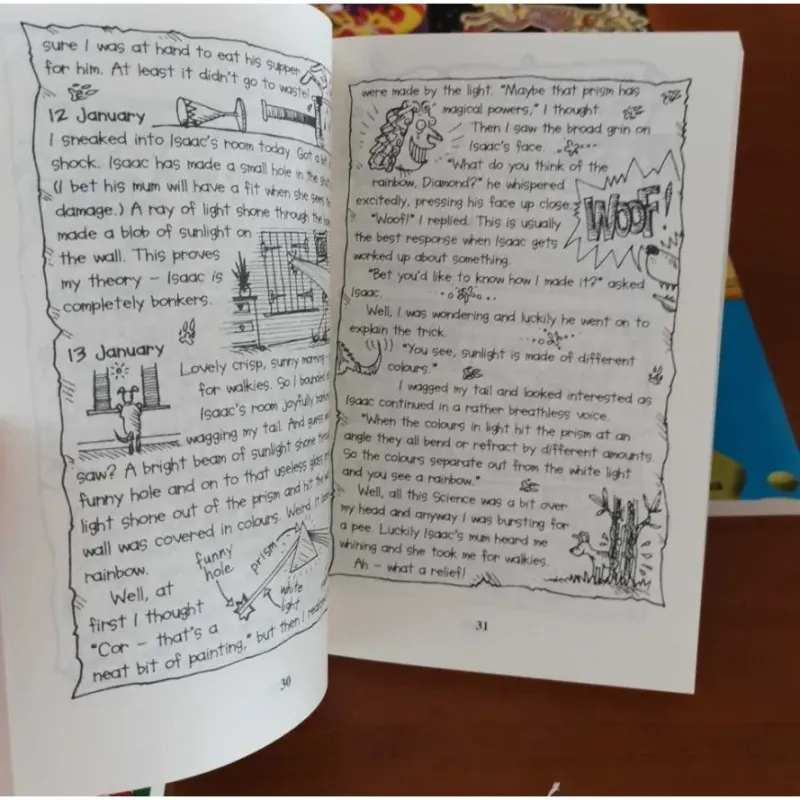 sure I was at hand to eat his supper
for him. At least it didn't go to waste!
12 January
I sneaked into Isaac's room today. Got a
shock. Isaac has made a small hole in the
(I bet his mum will have a fit when she sees
damage.) A ray of light shone through the
made a blob of sunlight on
the wall. This proves
my theory – Isaac is
completely bonkers.
13 January
Lovely crisp, sunny morning
for walkies. So I bounded
Isaac's room joyfully
wagging my tail. And guess
saw? A bright beam of sunlight shone
funny hole and on to that useless
light shone out of the prism and hit the
wall was covered in colours. Weird. It
rainbow.
Well, at
first I thought
"Cor – that's a
neat bit of painting," but then I
funny
hole
prism
white
light
30
were made by the light. "Maybe that prism has
magical powers," I thought
Then I saw the broad grin on
Isaac's face.
"What do you think of the
rainbow, Diamond?" he whispered
excitedly, pressing his face up close.
"Woof!" I replied. This is usually
the best response when Isaac gets
worked up about something.
WOOF!
"Bet you'd like to know how I made it?" asked
Isaac.
Well, I was wondering and luckily he went on to
explain the trick.
"You see, sunlight is made of different
colours."
I wagged my tail and looked interested as
Isaac continued in a rather breathless voice.
"When the colours in light hit the prism at an
angle they all bend or refract by different amounts.
So the colours separate out from the white light
and you see a rainbow."
Well, all this Science was a bit over
my head and anyway I was bursting for
a pee. Luckily Isaac's mum heard me
whining and she took me for walkies.
Ah – what a relief!
31